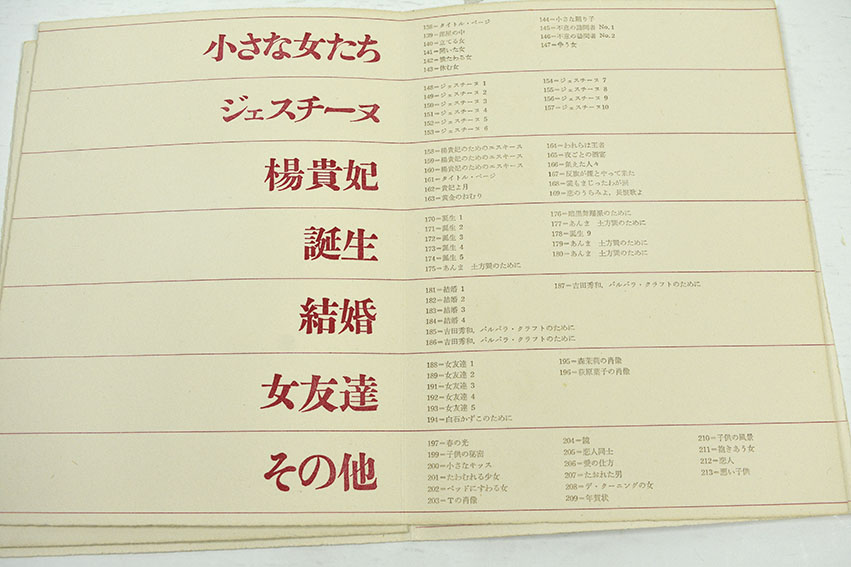 小さな女たち
138=タイトル・ページ
139=部屋の中
140=立てる女
141=開いた女
142=横たわる女
143=休む女
144=小さな踊り子
145=不意の訪問者 No.1
146=不意の訪問者 No.2
147=争う女
ジェスチーヌ
148=ジェスチーヌ 1
149=ジェスチーヌ 2
150=ジェスチーヌ 3
151=ジェスチーヌ 4
152=ジェスチーヌ 5
153=ジェスチーヌ 6
154=ジェスチーヌ 7
155=ジェスチーヌ 8
156=ジェスチーヌ 9
157=ジェスチーヌ10
楊貴妃
158=楊貴妃のためのエスキース
159=楊貴妃のためのエスキース
160=楊貴妃のためのエスキース
161=タイトル・ページ
162=貴妃よ月
163=黄金のねむり
164=われらは王者
165=夜ごとの饗宴
166=飢えた人々
167=反旗が煙とやって来た
168=涙もまじったわが回
169=恋のうらみよ、長恨歌よ
誕生
170=誕生 1
171=誕生 2
172=誕生 3
173=誕生 4
174=誕生 5
175=あんま 土方巽のために
176=暗黒舞踊派のために
177=あんま 土方巽のために
178=誕生 9
179=あんま 土方巽のために
180=あんま 土方巽のために
結婚
181=結婚 1
182=結婚 2
183=結婚 3
184=結婚 4
185=吉田秀和、バルバラ・クラフトのために
186=吉田秀和、バルバラ・クラフトのために
187=吉田秀和、バルバラ・クラフトのために
女友達
188=女友達 1
189=女友達 2
191=女友達 3
192=女友達 4
193=女友達 5
194=白石かずこのために
195=森茉莉の肖像
196=萩原葉子の肖像
その他
197=春の光
199=子供の秘密
200=小さなキッス
201=たわむれる少女
202=ベッドにすわる女
203=Tの肖像
204=鏡
205=恋人同士
206=愛の仕方
207=たおれた男
208=デ・クーニングの女
209=年賀状
210=子供の風景
211=抱きあう女
212=恋人
213=悪い子供